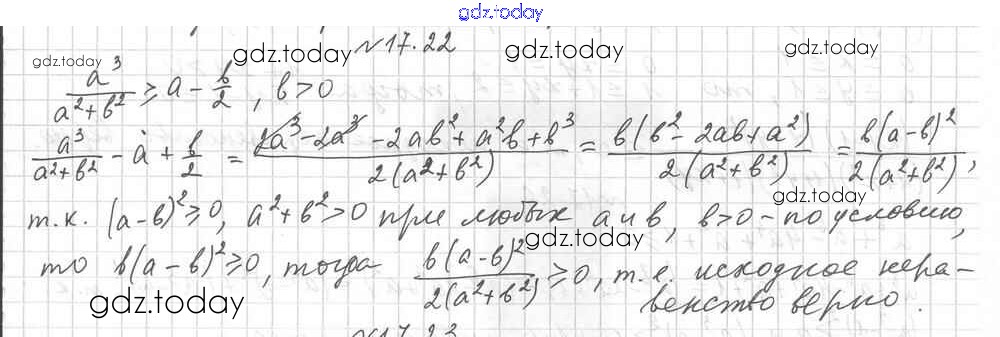 gdz.today
№17.22
gdz.today gdz.today gdz.today gdz.today
a³/(a²+b²) ≥ a - b/2, b>0
a³/(a²+b²) - a + b/2 = (2a³-2a³-2ab²+a²b+b³)/(2(a²+b²)) = b(b²-2ab+a²)/(2(a²+b²)) = b(a-b)²/(2(a²+b²)),
gdz.today
т.к. (a-b)²≥0, a²+b²>0 при любых a и b, b>0 - по условию,
gdz.today
то b(a-b)²≥0, тогда b(a-b)²/(2(a²+b²)) ≥0, т.е. исходное нера-
gdz.today
венство верно.
№17.23